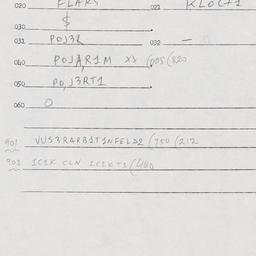 020 FLARS 021 KLOC+1
030 $
031 POJ3R 032 —
040 POJA,R1M XS (005 (820
050 PO,J3RT1
060 O
901 VUS3RARB1T1NFELD2 (750 (212
902 1C1K CLN 1C1KT1 (400